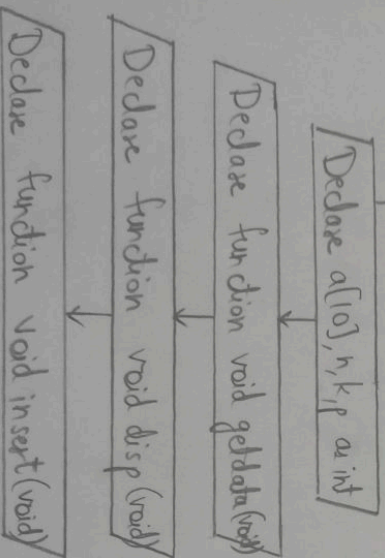 Declare a[10], n, k, p as int
Declare function void getdata(void)
Declare function void disp(void)
Declare function void insert(void)